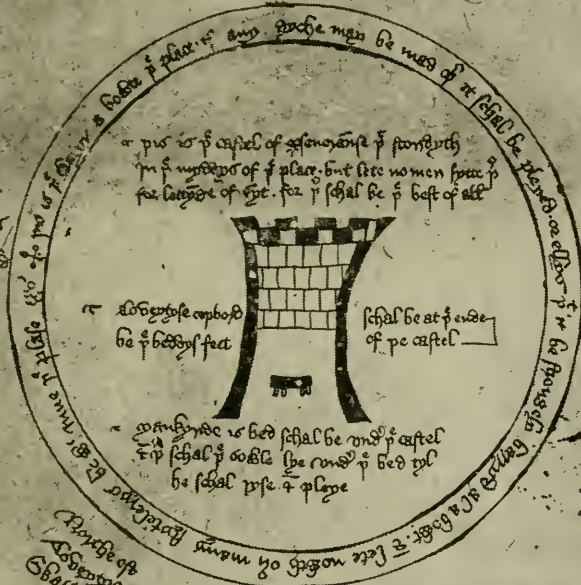 þis is þe watyr a bowte þe place. if any dyche may be mad þer it schal be pleyed. or ellys þat it be stronglý barryd al a bowt. & lete nowth ouyr many stytelerys be wyth Inne þe plase
þis is þe castel of perseueraunse þat stondyth
In þe myddys of þe place. but lete no men sytte þer
for lettynge of syt. for þer schal be þe best of all
coveytyse copbord
be þe beddys feet
schal be at þe ende
of þe castel
mankynde is bed schal be vndyr þe castel
& þer schal þe sowle lye vndyr þe bed tyl
he schal ryse & pleye